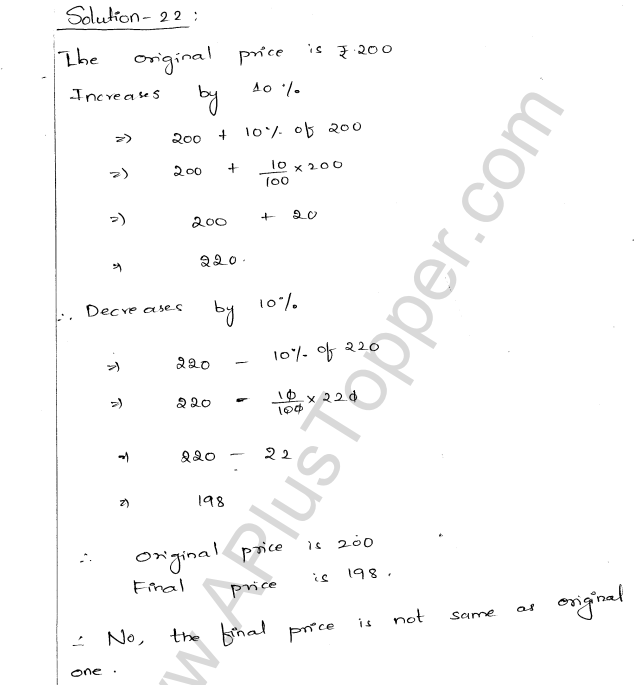 Solution-22:
The original price is ₹.200
Increases by 10%
=> 200 + 10% of 200
=> 200 + 10/100 × 200
=> 200 + 20
=> 220.
∴ Decreases by 10%
=> 220 - 10% of 220
=> 220 - 10/100 × 220
=> 220 - 22
=> 198
∴ Original price is 200
Final price is 198.
∴ No, the final price is not same as original
one.
www.APlusTopper.com